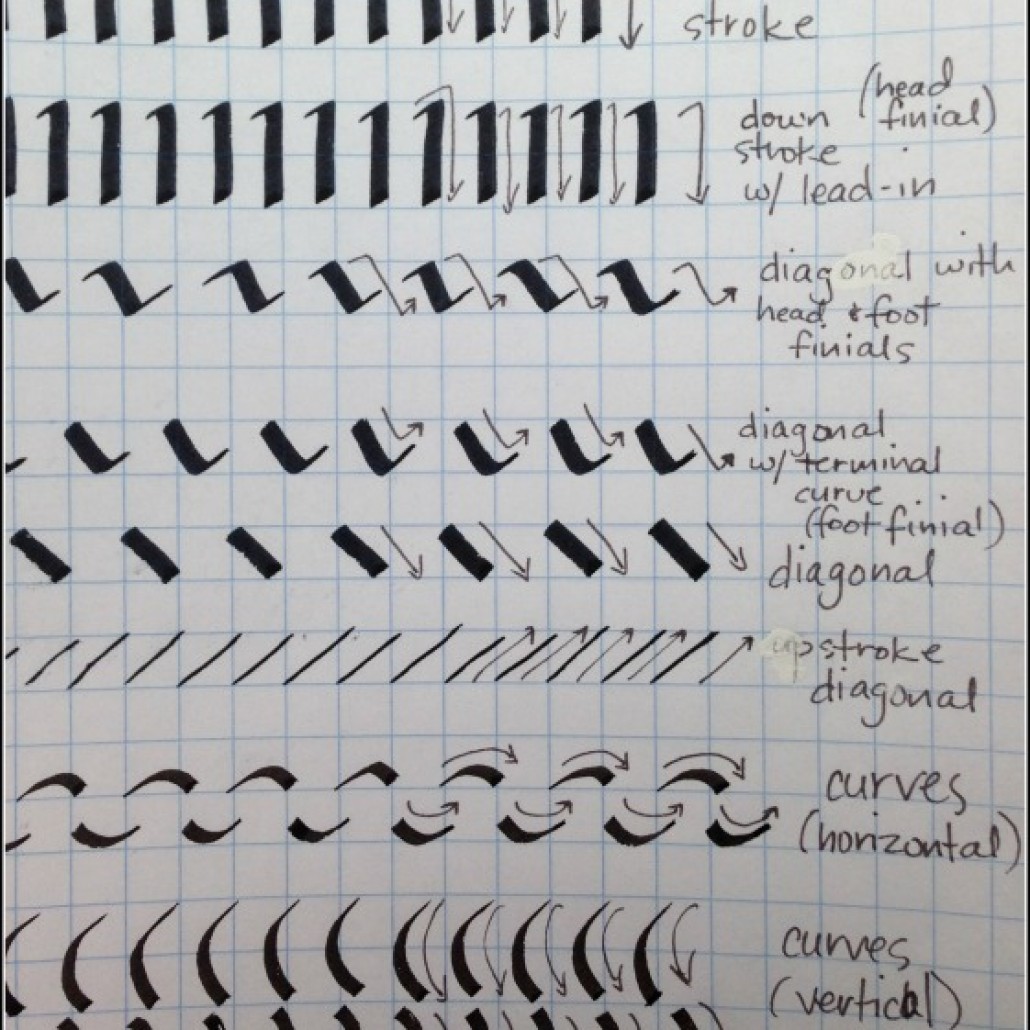 stroke
(head
down finial)
stroke
w/ lead-in
diagonal with
head & foot
finials
diagonal
w/ terminal
curve
(foot finial)
diagonal
upstroke
diagonal
curves
(horizontal)
curves
(vertical)